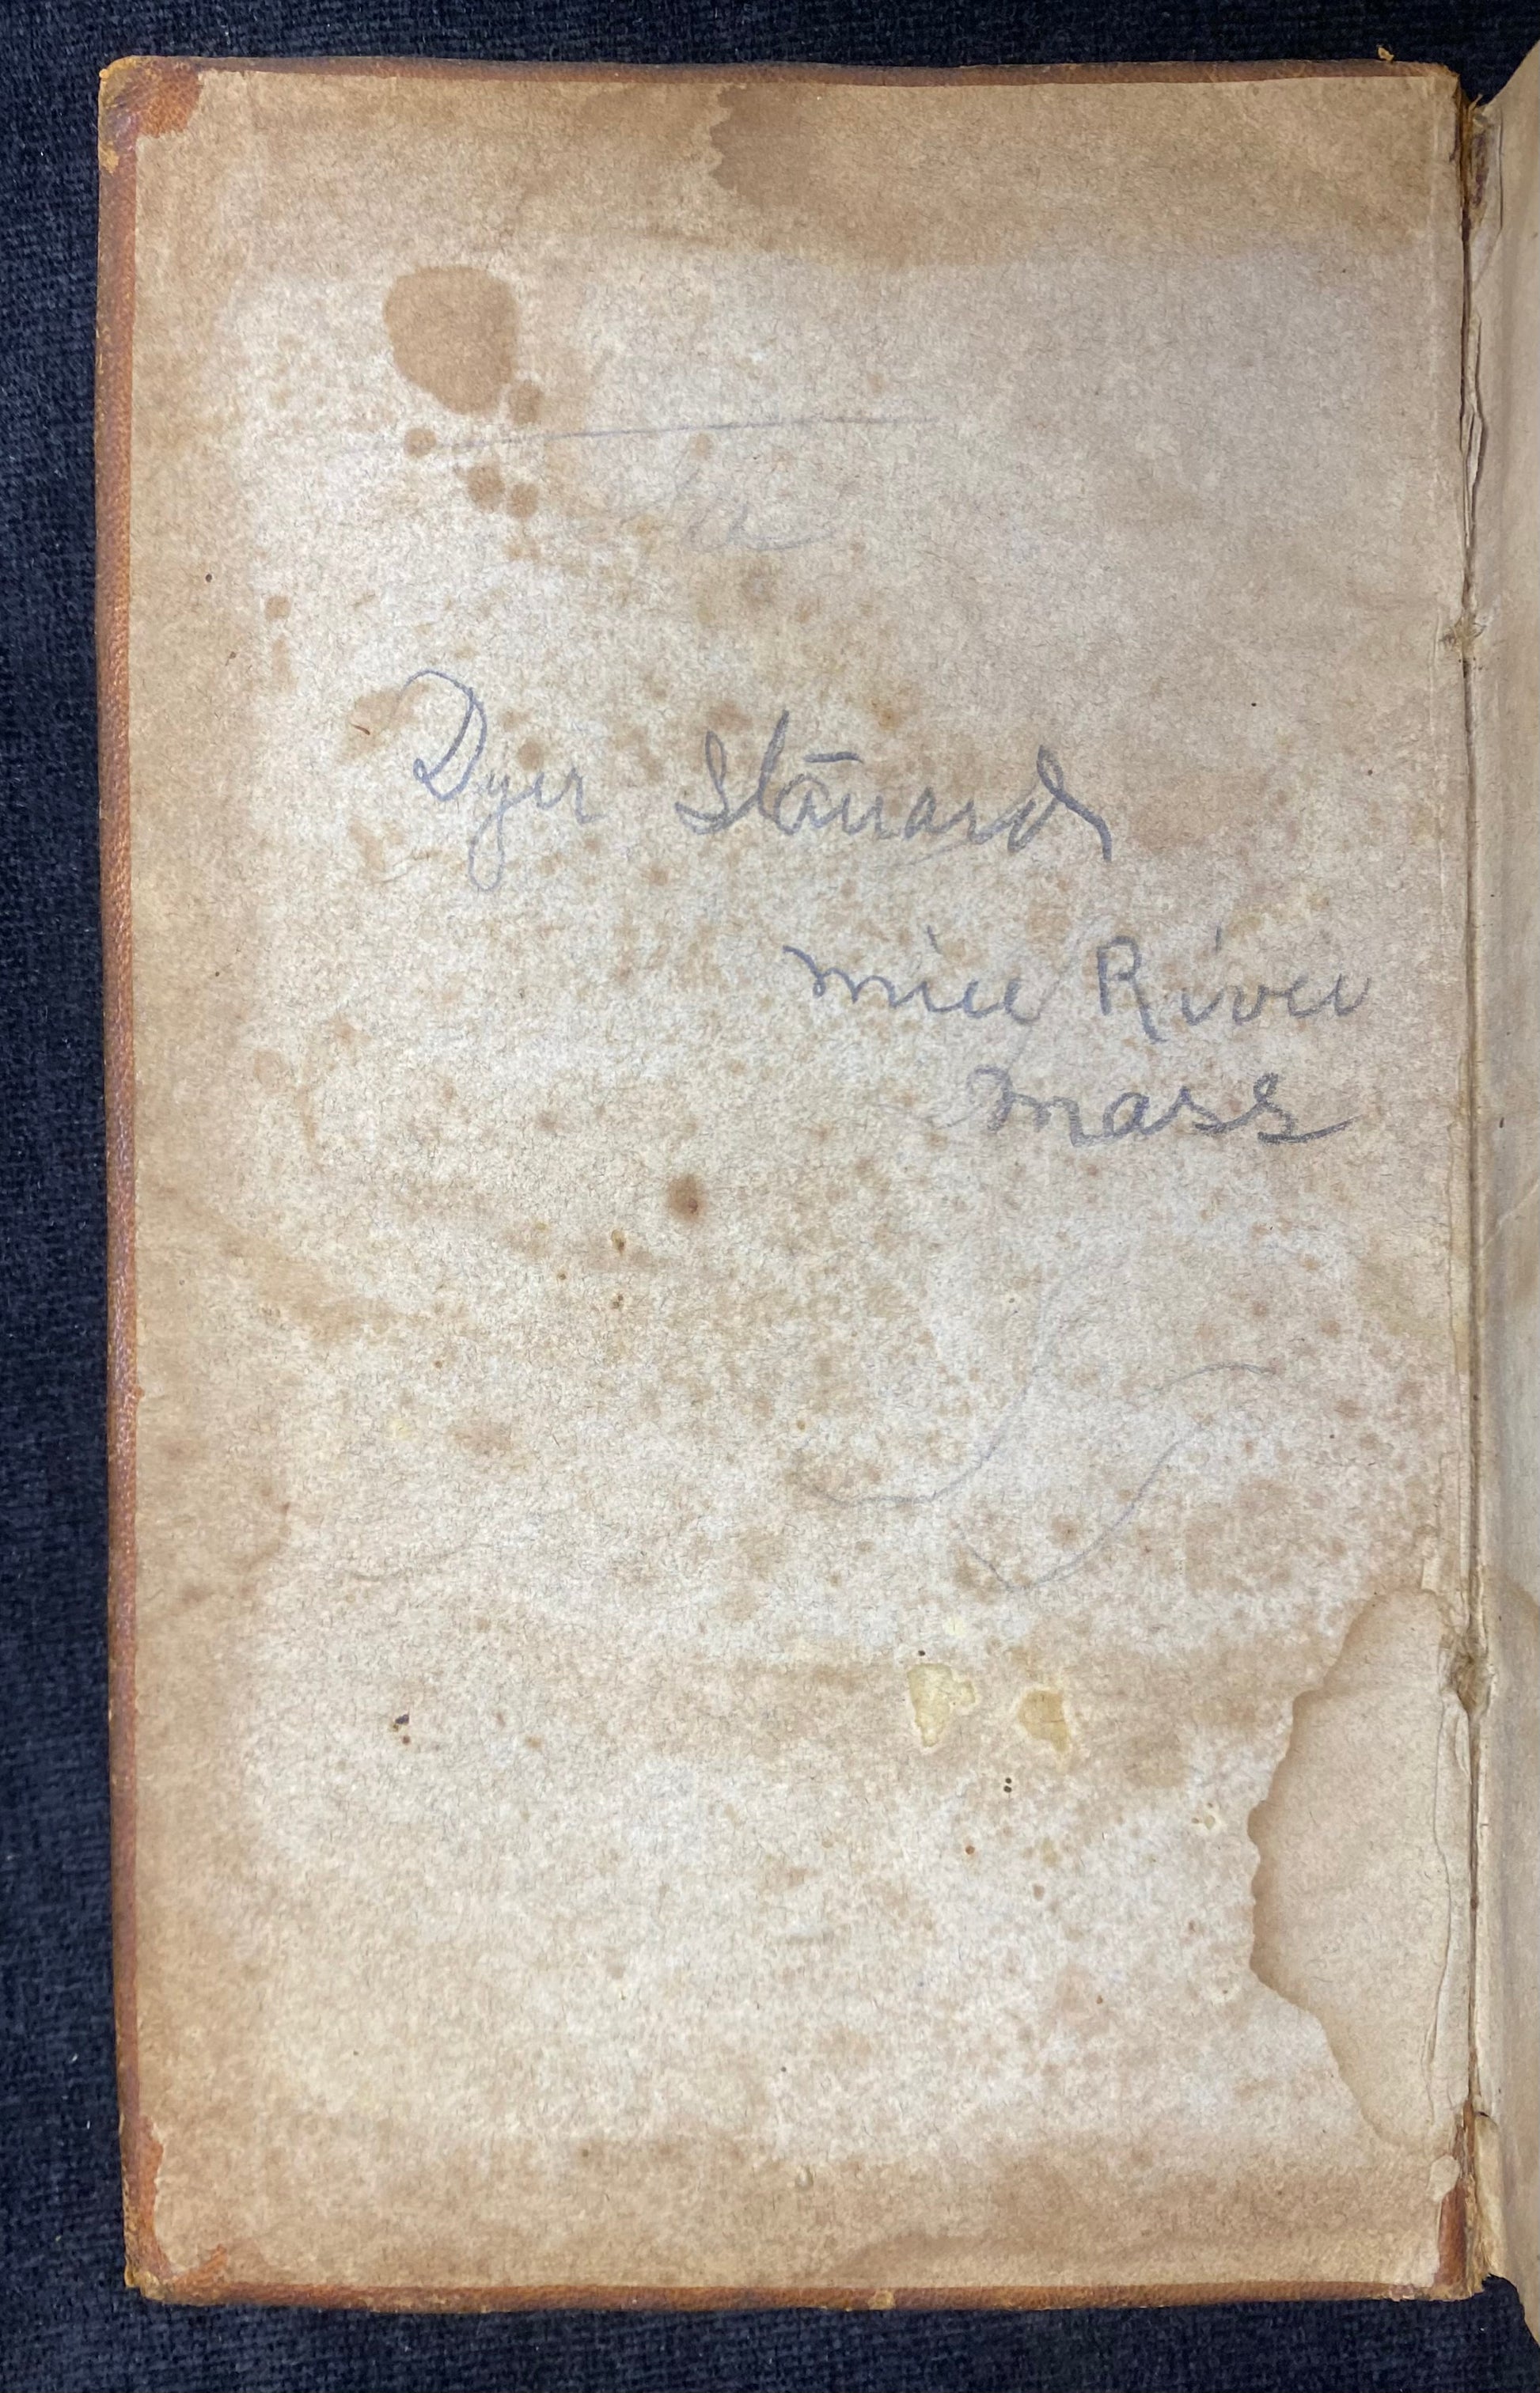 Dyer Stanard
Mill River
Mass